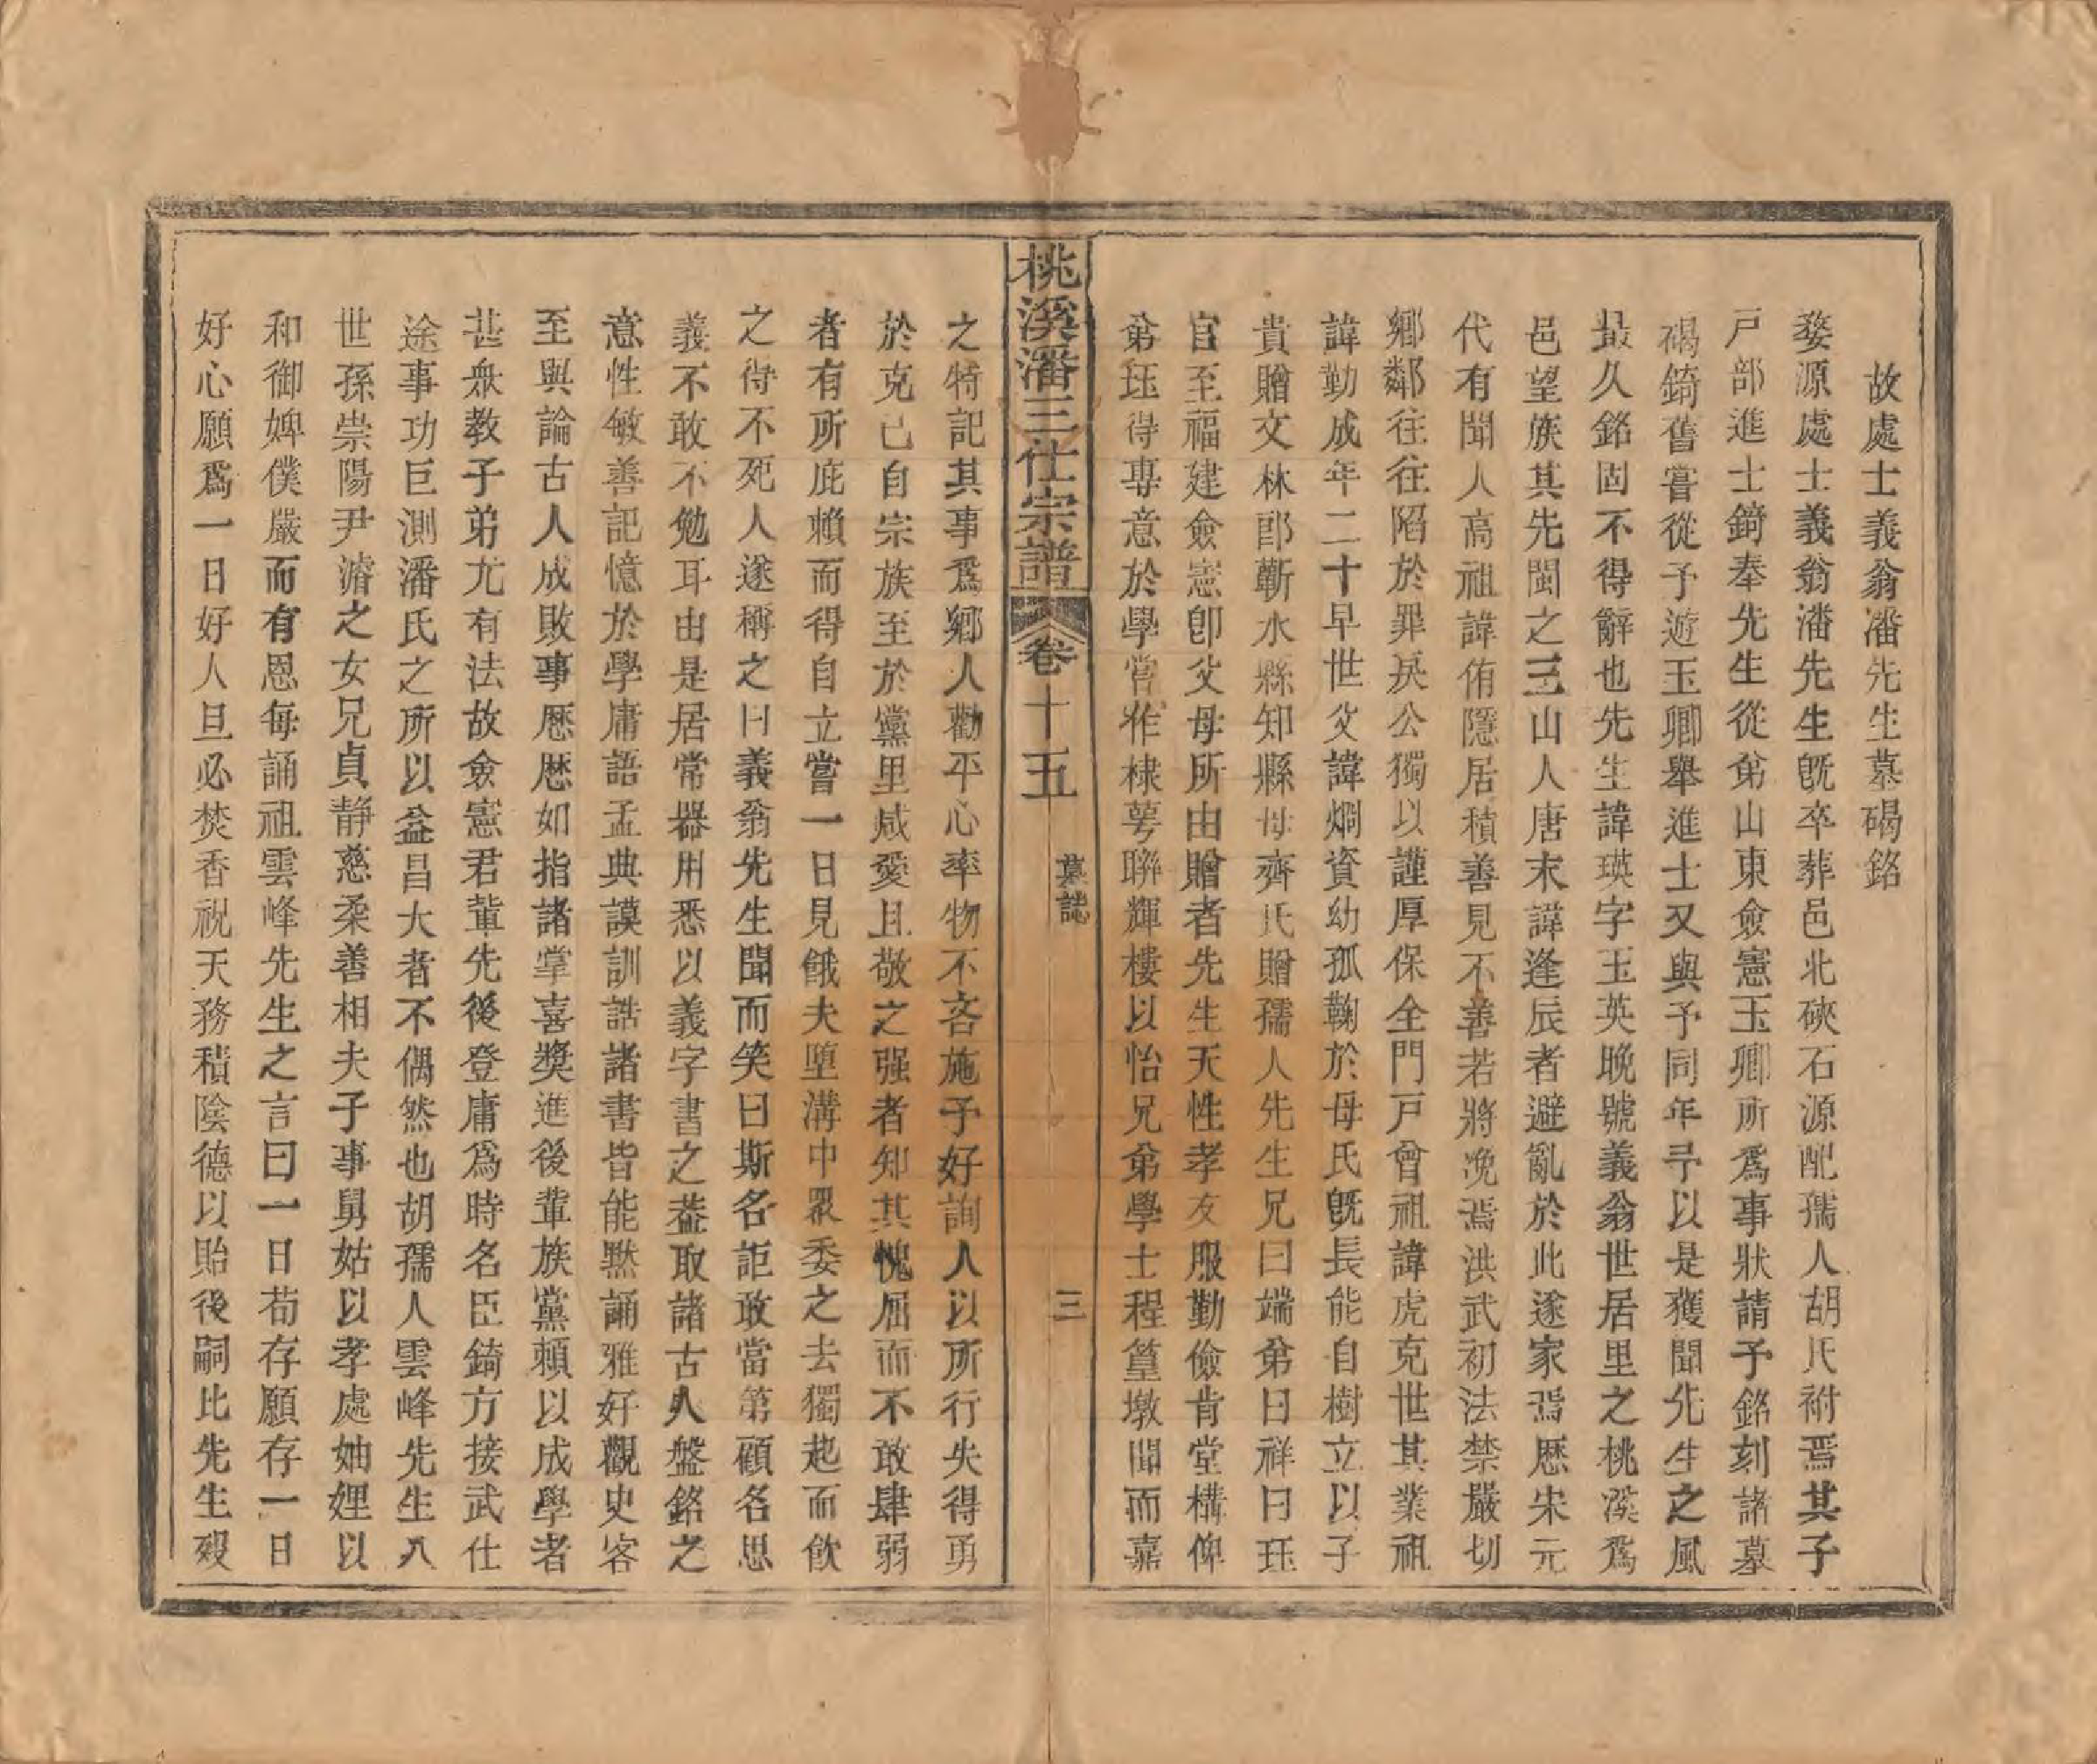 故處士義翁潘先生墓碣銘
婺源處士義翁潘先生旣卒葬邑北硤石源配孺人胡氏祔焉其子
戸部進士錡奉先生從弟山東僉憲玉卿所爲事狀請予銘刻諸墓
碣錡舊嘗從予遊玉卿舉進士又與予同年予以是獲聞先生之風
最久銘固不得辭也先生諱瑛字玉英晚號義翁世居里之桃溪爲
邑望族其先閩之三山人唐末諱逢辰者避亂於此遂家焉歷宋元
代有聞人高祖諱侑隱居積善見不善若將浼焉洪武初法禁嚴切
鄉鄰往往陷於罪戾公獨以謹厚保全門戸曾祖諱虎克世其業祖
諱勤成年二十早世父諱烱資幼孤鞠於母氏旣長能自樹立以子
貴贈文林郎蘄水縣知縣母齊氏贈孺人先生兄曰端弟曰祥曰珏
官至福建僉憲卽父母所由贈者先生天性孝友服勤儉肯堂構俾
弟珏得專意於學嘗作棣萼聯輝樓以怡兄弟學士程篁墩聞而嘉
桃溪潘三仕宗譜 卷十五 墓誌 三
之特記其事爲鄉人勸平心率物不吝施予好詢人以所行失得勇
於克己自宗族至於黨里咸愛且敬之强者知其愧屈而不敢肆弱
者有所庇賴而得自立嘗一日見餓夫墮溝中眾委之去獨起而飲
之得不死人遂稱之曰義翁先生聞而笑曰斯名詎敢當第顧名思
義不敢不勉耳由是居常器用悉以義字書之葢取諸古人盤銘之
意性敏善記憶於學庸語孟典謨訓誥諸書皆能默誦雅好觀史客
至與論古人成敗事歷歷如指諸掌喜奬進後輩族黨賴以成學者
甚衆教子弟尤有法故僉憲君輩先後登庸爲時名臣錡方接武仕
途事功巨測潘氏之所以益昌大者不偶然也胡孺人雲峰先生八
世孫崇陽尹濬之女兄貞靜慈柔善相夫子事舅姑以孝處妯娌以
和御婢僕嚴而有恩每誦祖雲峰先生之言曰一日苟存願存一日
好心願爲一日好人旦必焚香祝天務積陰德以貽後嗣比先生歿